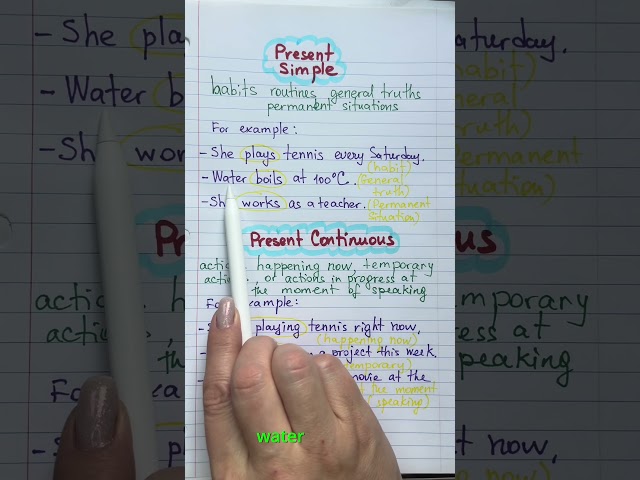 Present
Simple
habits routines general truths
permanent situations
For example:
- She plays tennis every Saturday.
(habit)
- Water boils at 100°C.
(General
truth)
- Sh works as a teacher.
(Permanent
situation)
Present Continuous
actio happening now, temporary
acti , or actions in progress at
the moment of speaking
Fo example:
- S playing tennis right now,
(happening now)
a project this week.
temporary)
movie at the
the moment
(speaking)
water